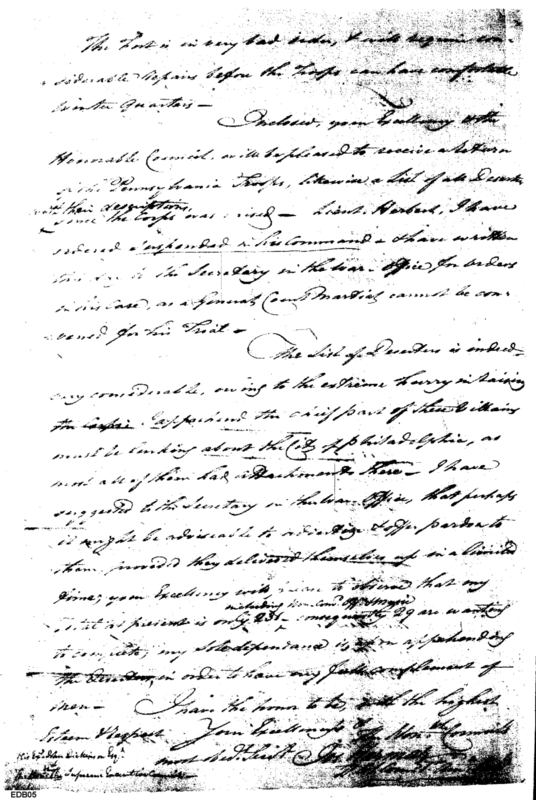 The Fort is in very bad order, & will require con-
siderable repairs before the Troops can have comfortable
Winter Quarters —
Inclosed, your Excellency & the
Honourable Council will be pleased to receive a Return
of the Pennsylvania Troops, likewise a List of all Deserters
with their descriptions,
since the Corps was raised — Lieut. Herbert, I have
ordered Suspended in his Command & I have written
this day to the Secretary in the War-Office for orders
in his Case, as a General Court Martial cannot be con-
vened for his Trial —
The List of Deserters is indeed
very considerable, owing to the extreme hurry in raising
the Corps. I apprehend the chief part of these Villains
must be lurking about the City of Philadelphia, as
most all of them had attachments there — I have
suggested to the Secretary in the War-Office, that perhaps
it might be adviseable to advertize & offer pardon to
them provided they delivered themselves up in a limited
time; your Excellency will please to observe that my
including Non Com'd
total at present is only 231 — consequently 29 are wanting
to complete; my sole dependance is upon apprehending
the Deserters, in order to have my full complement of
men — I have the honor to be, with the highest
Esteem & Respect Your Excellency's & Hon. Council's
most Obed. Servt. Jos Harmar
His Ex'y John Dickinson Esq.
Supreme Executive Council
EDB05